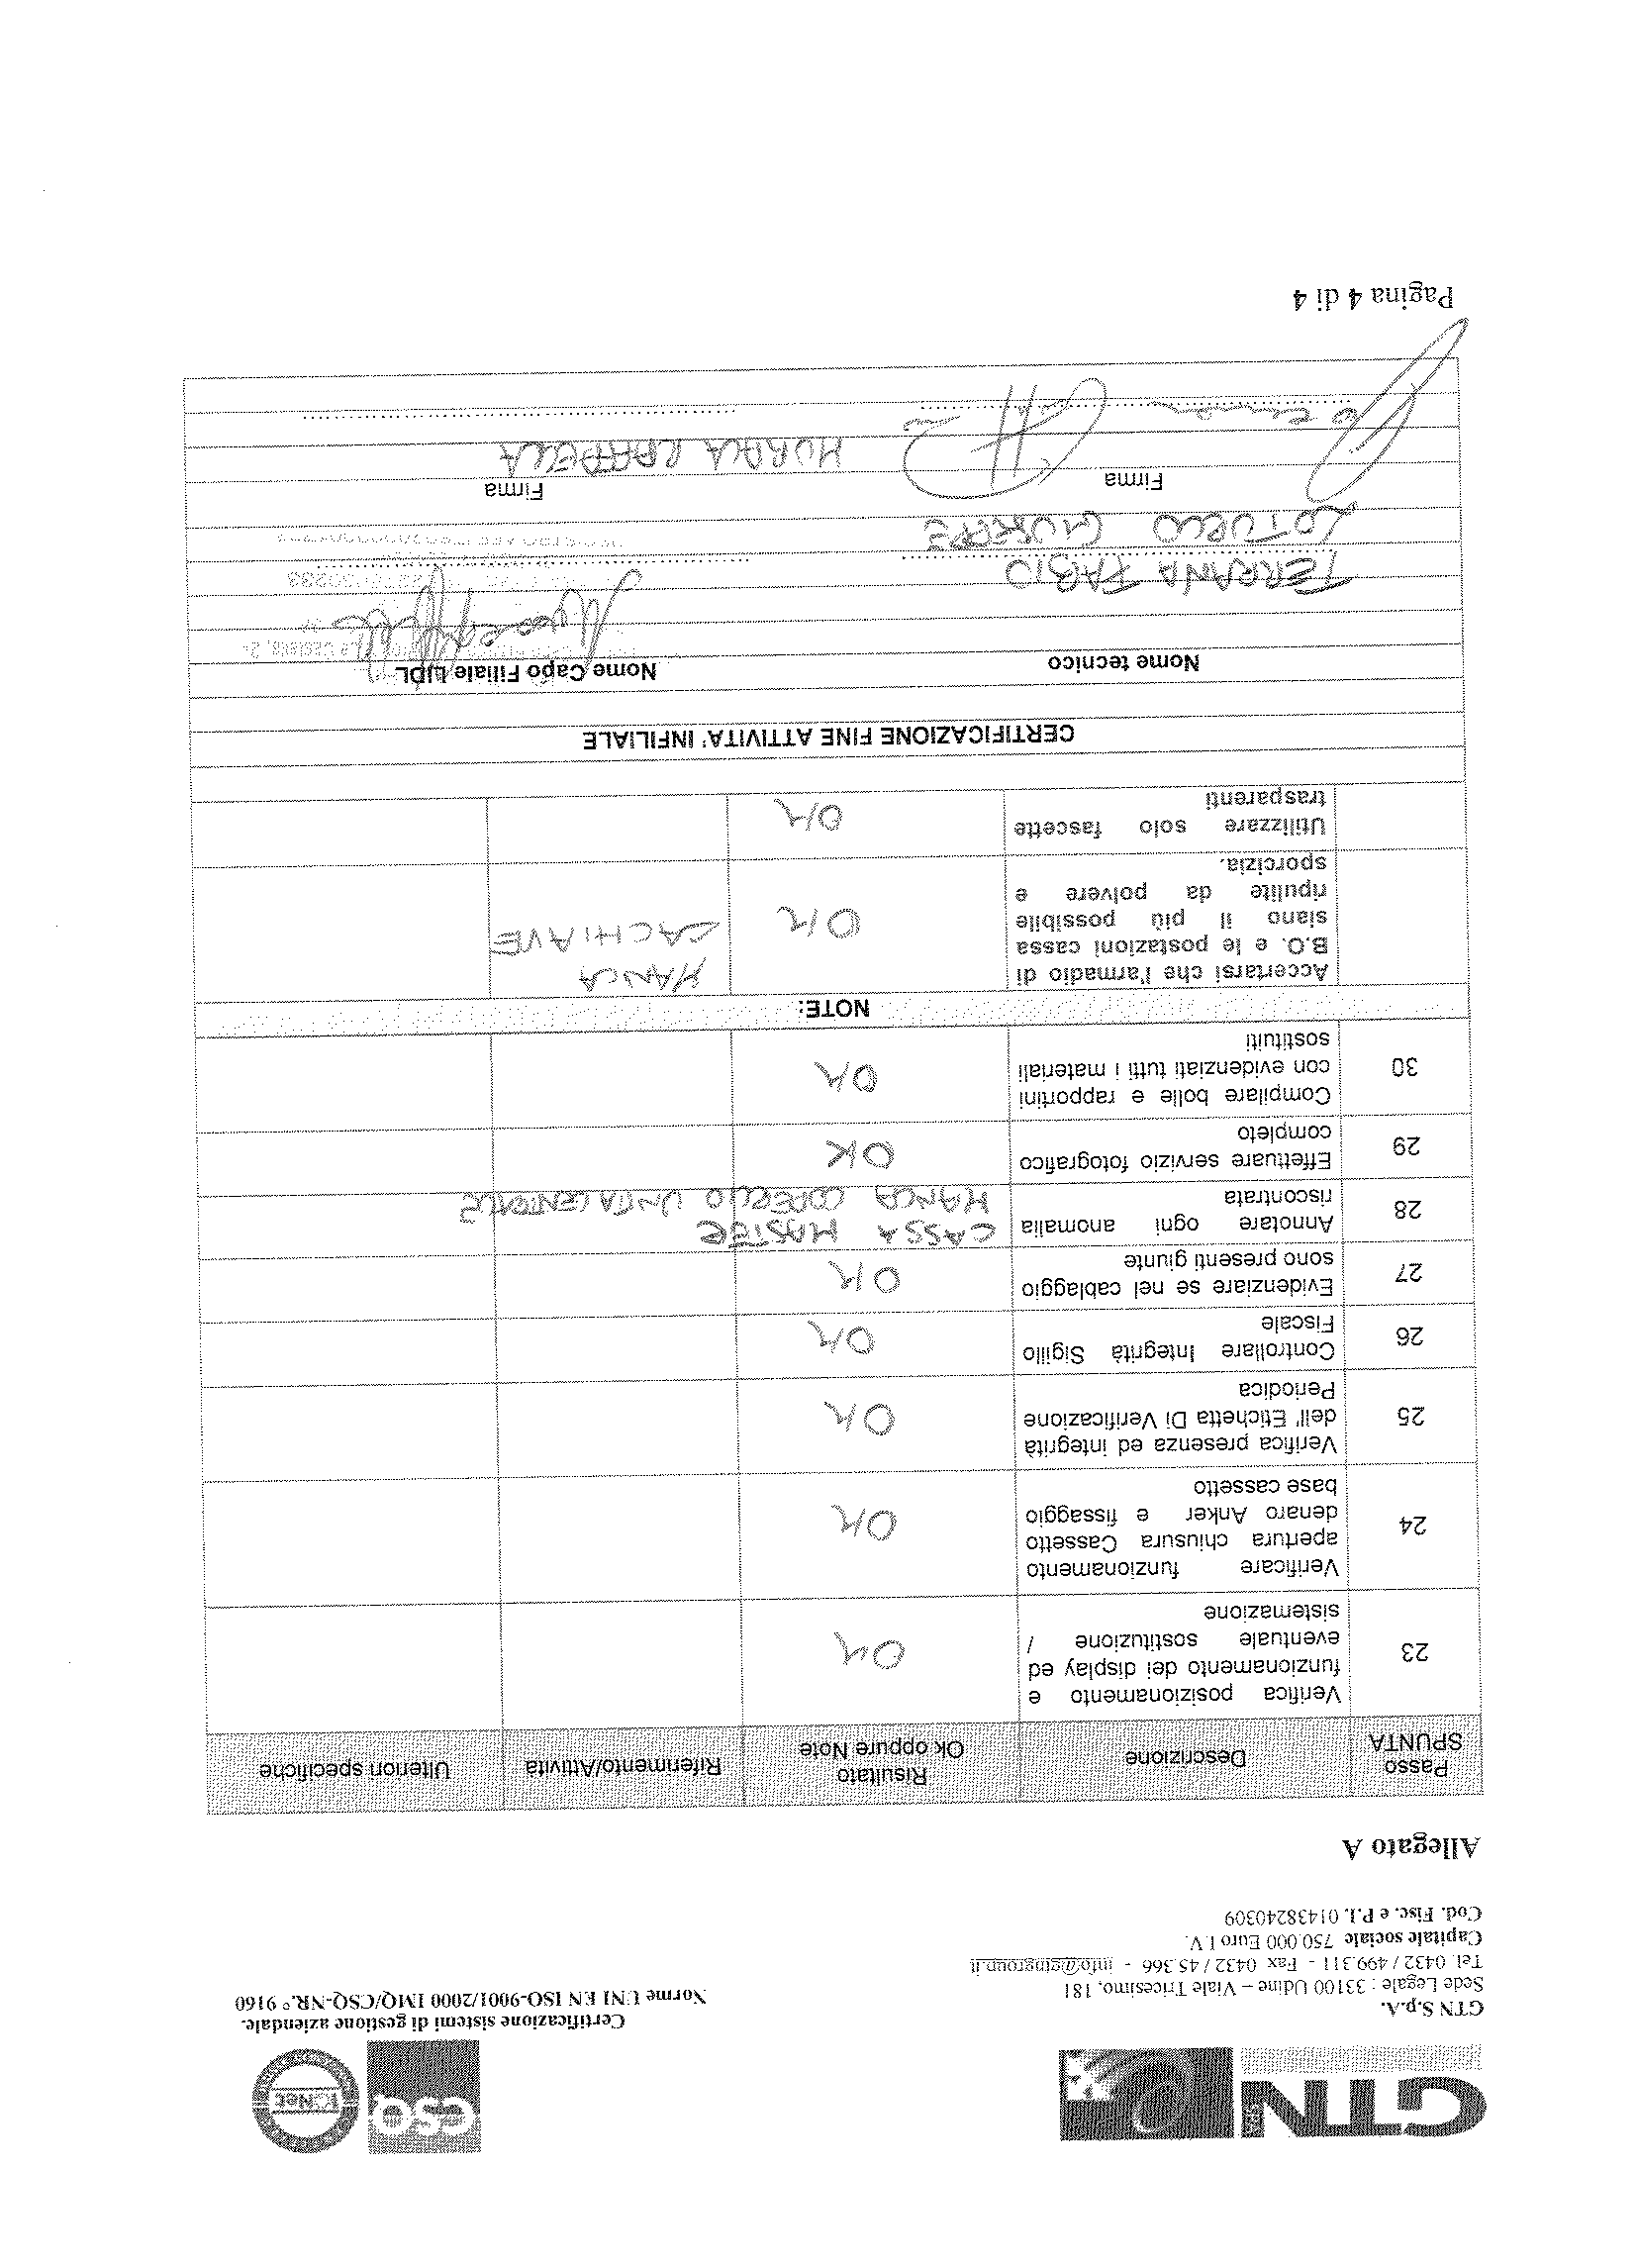 GTN
CSQ
IQNet
GTN S.p.A.
Sede Legale : 33100 Udine – Viale Tricesimo, 181
Tel. 0432 / 499.311 - Fax 0432 / 45.366 - info@gtngroup.it
Capitale sociale 750.000 Euro I.V.
Cod. Fisc. e P.I. 01438240309
Certificazione sistemi di gestione aziendale.
Norme UNI EN ISO-9001/2000 IMQ/CSQ-NR.° 9160
Allegato A
Passo SPUNTA
Descrizione
Risultato
Ok oppure Note
Riferimento/Attività
Ulteriori specifiche
23
Verifica posizionamento e
funzionamento dei display ed
eventuale sostituzione /
sistemazione
OK
24
Verificare funzionamento
apertura chiusura Cassetto
denaro Anker e fissaggio
base cassetto
OK
25
Verifica presenza ed integrità
dell' Etichetta Di Verificazione
Periodica
OK
26
Controllare Integrità Sigillo
Fiscale
OK
27
Evidenziare se nel cablaggio
sono presenti giunte
OK
28
Annotare ogni anomalia
riscontrata
CASSA MASTER
MANCA COPERCHIO UNITA CENTRALE
29
Effettuare servizio fotografico
completo
OK
30
Compilare bolle e rapportini
con evidenziati tutti i materiali
sostituiti
OK
NOTE:
Accertarsi che l'armadio di
B.O. e le postazioni cassa
siano il più possibile
ripulite da polvere e
sporcizia.
OK
MANCA
LA CHIAVE
Utilizzare solo fascette
trasparenti
OK
CERTIFICAZIONE FINE ATTIVITA' INFILIALE
Nome tecnico
Nome Capo Filiale LIDL
TERRANA FABIO
LOTURCO GIUSEPPE
Firma
Firma
Pagina 4 di 4